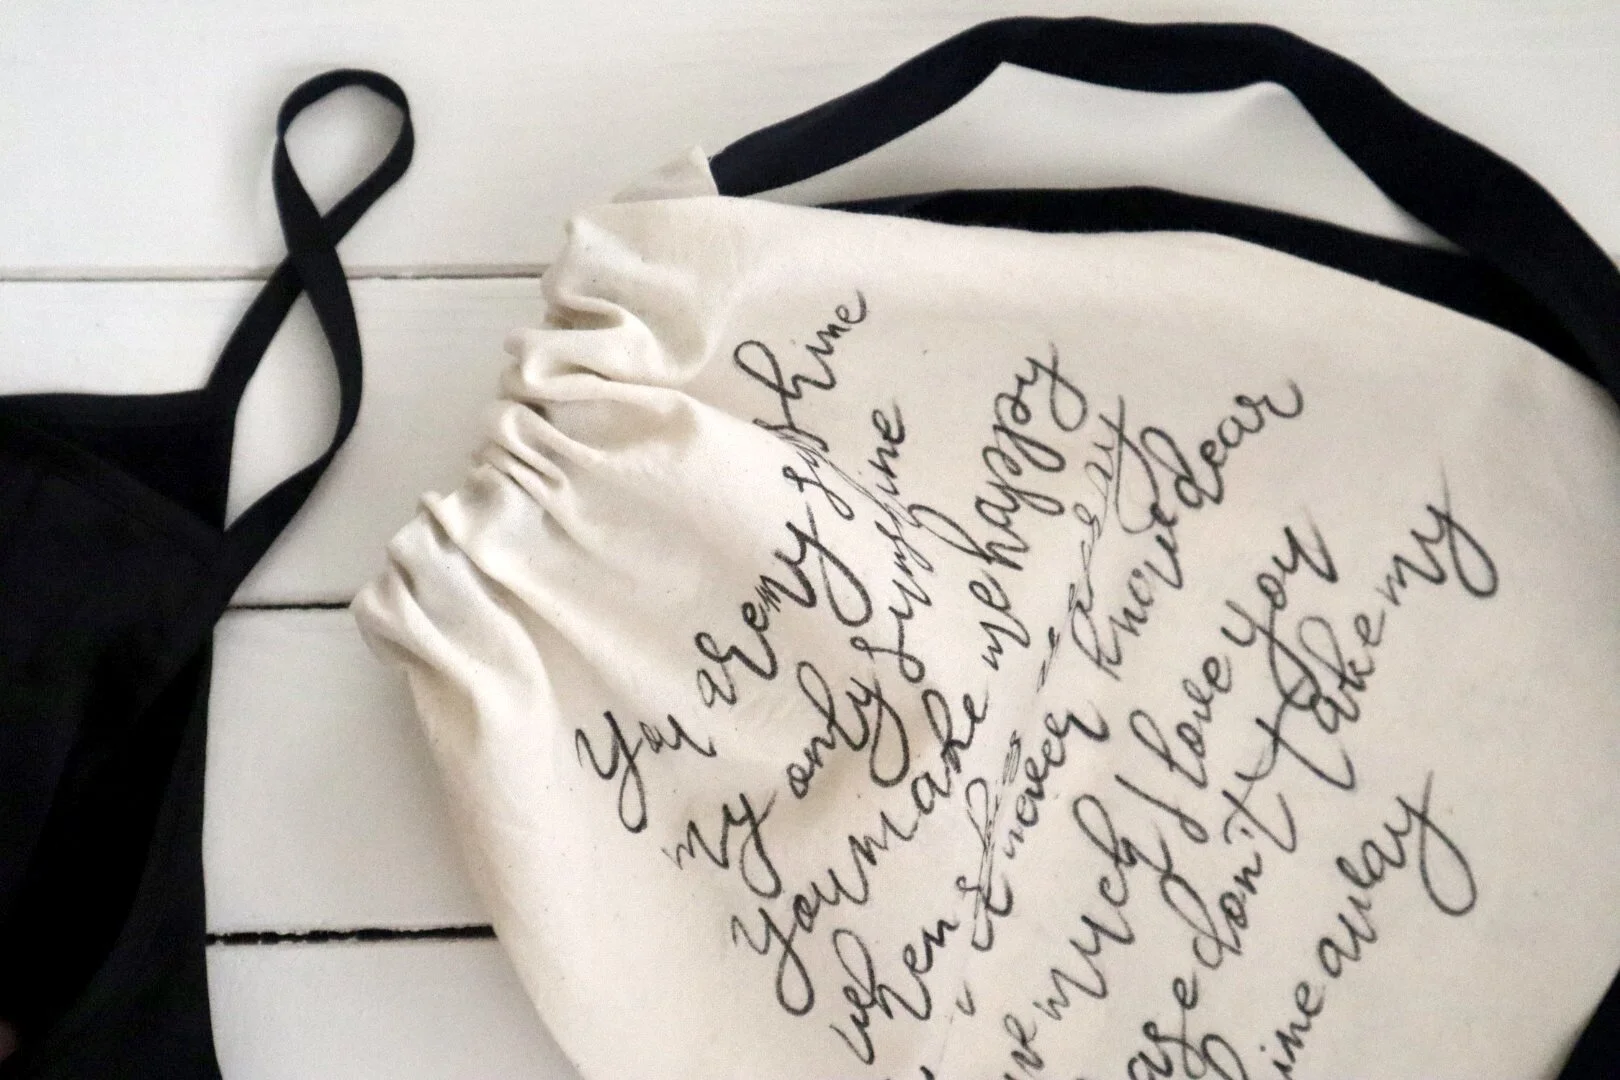 You are my sunshine
my only sunshine
You make me happy
when
never know dear
much I love you
don't take my
away